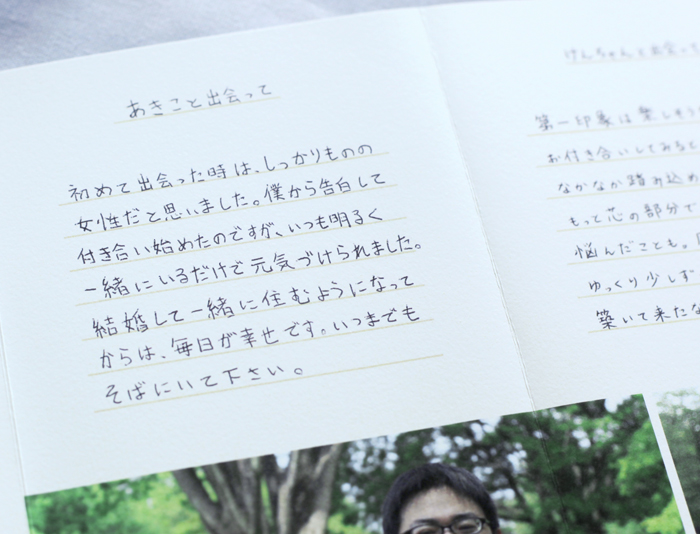 あきこと出会って
初めて出会った時は、しっかりものの
女性だと思いました。僕から告白して
付き合い始めたのですが、いつも明るく
一緒にいるだけで元気づけられました。
結婚して一緒に住むようになって
からは、毎日が幸せです。いつまでも
そばにいて下さい。
けんちゃんと出会って
第一印象は楽しそう
お付き合いしてみると
なかなか踏み込め
もって芯の部分で
悩んだことも。
ゆっくり少しず
築いて来た